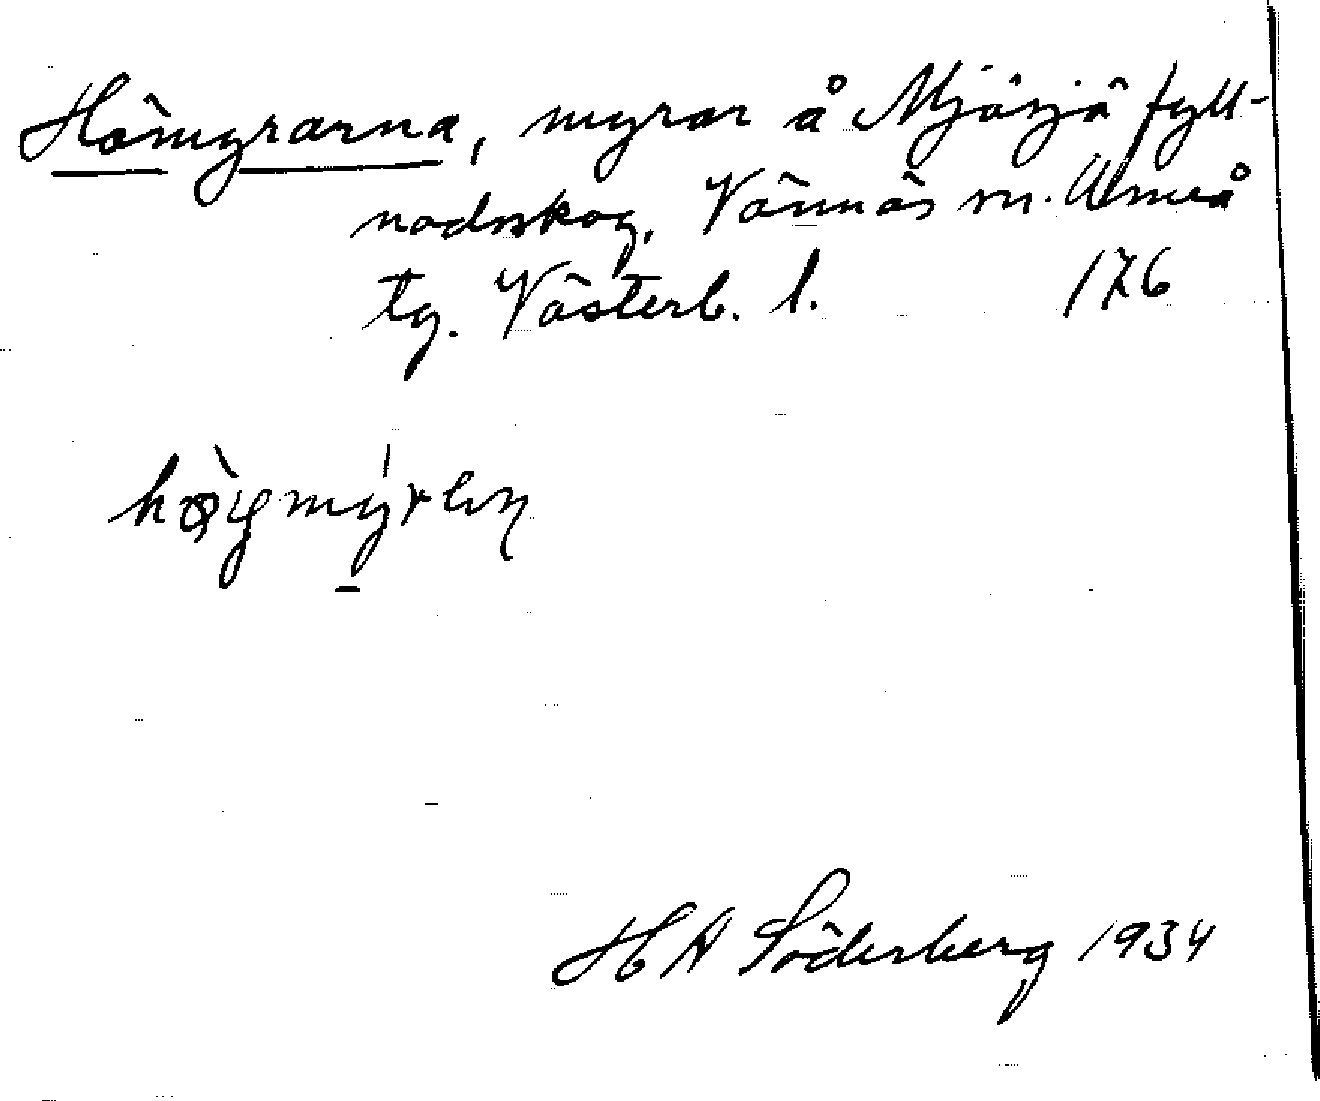 Hömyrarna, myrar å Mjösjö fyll-
nadsskog, Vännäs sn. Umeå
tg. Västerb. l. 176
H A Söderberg 1934